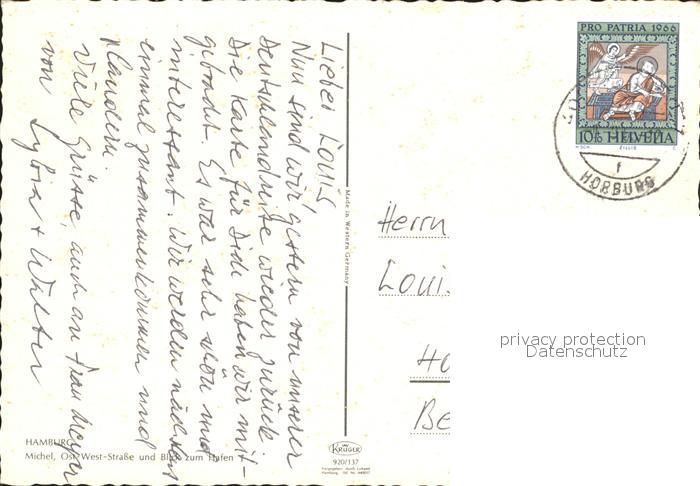 Lieber Louis!
Nun sind wir gestern von unserer
Deutschlandreise wieder zurück
Die Karte für Dich haben wir mit-
gebracht. Es war sehr schön und
interessant. Wir werden nächstens
einmal zusammenkommen und
plaudern.
Viele Grüsse, auch an Frau Meyer
von Lydia + Walter
Made in Western Germany
PRO PATRIA 1966
10+10 HELVETIA
HORBURG
Herrn
Louis
Ho
Be
privacy protection
Datenschutz
HAMBURG
Michel, Ost-West-Straße und Blick zum Hafen
KRÜGER
920/137